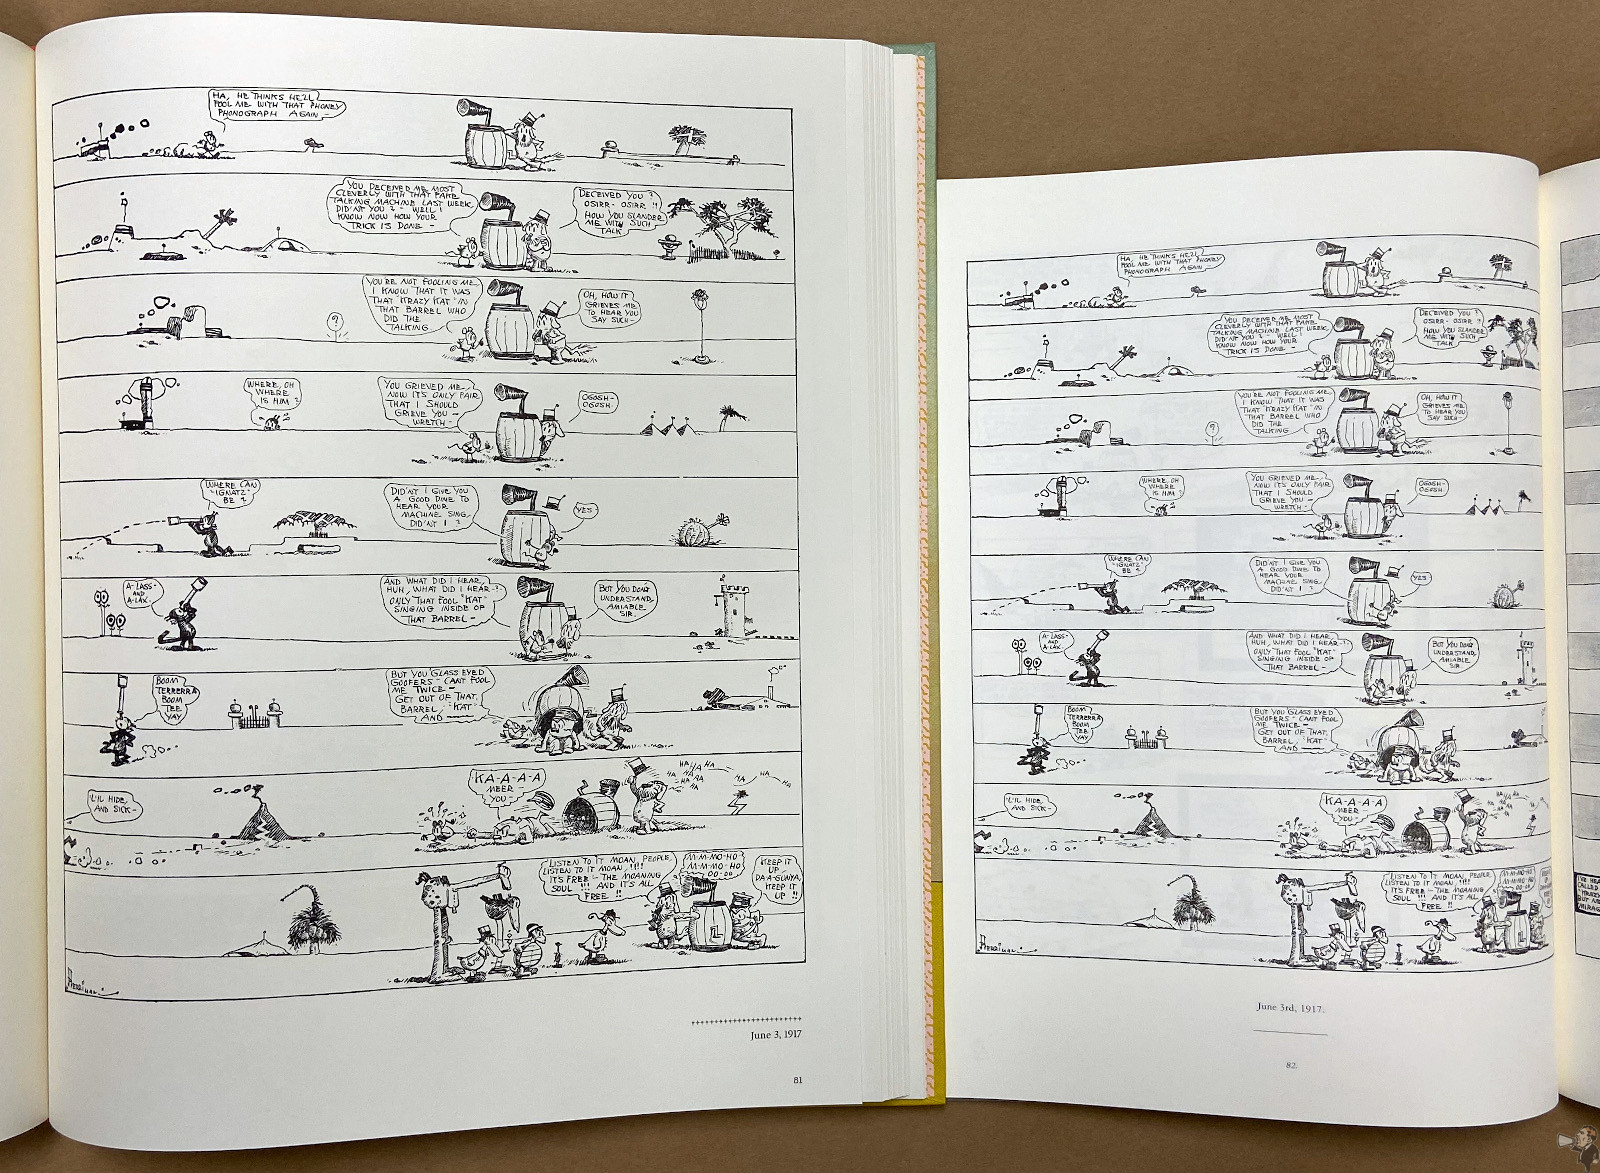 HA, HE THINKS HE'LL
FOOL ME WITH THAT PHONEY
PHONOGRAPH AGAIN -
YOU DECEIVED ME MOST
CLEVERLY WITH THAT FAKE
TALKING MACHINE LAST WEEK,
DID'NT YOU ? - WELL I
KNOW NOW HOW YOUR
TRICK IS DONE -
DECEIVED YOU ?
OSIRR - OSIRR !!
HOW YOU SLANDER
ME WITH SUCH
TALK
YOU'RE NOT FOOLING ME,
I KNOW THAT IT WAS
THAT "KRAZY KAT" IN
THAT BARREL WHO
DID THE
TALKING
OH, HOW IT
GRIEVES ME
TO HEAR YOU
SAY SUCH -
?
WHERE, OH
WHERE
IS HIM ?
YOU GRIEVED ME -
NOW IT'S ONLY FAIR
THAT I SHOULD
GRIEVE YOU -
WRETCH -
OGOSH -
OGOSH
WHERE CAN
"IGNATZ"
BE ?
DID'NT I GIVE YOU
A GOOD DIME TO
HEAR YOUR
MACHINE SING
DID'NT I ?
YES
A-LASS-
AND
A-LAX-
AND WHAT DID I HEAR,
HUH, WHAT DID I HEAR-?
ONLY THAT FOOL "KAT"
SINGING INSIDE OF
THAT BARREL -
BUT YOU DON'T
UNDERSTAND,
AMIABLE
SIR.
BOOM
TERRERRA
BOOM
TEE
YAY
BUT YOU GLASS EYED
GOOFERS - CAN'T FOOL
ME TWICE -
GET OUT OF THAT
BARREL, "KAT"
AND
L'IL HIDE,
AND SICK -
KA-A-A-A
MEER
YOU -
HA HA HA
HA HA
HA HA
HA HA HA
LISTEN TO IT MOAN, PEOPLE,
LISTEN TO IT MOAN, !!!!
IT'S FREE - THE MOANING
SOUL !!! AND IT'S ALL
FREE !!
M-M-MO-HO
M-M-MO-HO
OO-OO
KEEP IT
UP,
DA-A-GUNYA,
KEEP IT
UP !!
Herriman
June 3, 1917
81
HA, HE THINKS HE'LL
FOOL ME WITH THAT PHONEY
PHONOGRAPH AGAIN
YOU DECEIVED ME MOST
CLEVERLY WITH THAT FAKE
TALKING MACHINE LAST WEEK,
DID'NT YOU ? - WELL I
KNOW NOW HOW YOUR
TRICK IS DONE -
DECEIVED YOU ?
OSIRR - OSIRR !!
HOW YOU SLANDER
ME WITH SUCH
TALK
YOU'RE NOT FOOLING ME,
I KNOW THAT IT WAS
THAT "KRAZY KAT" IN
THAT BARREL WHO
DID THE
TALKING
OH, HOW IT
GRIEVES ME
TO HEAR YOU
SAY SUCH -
?
WHERE, OH
WHERE
IS HIM ?
YOU GRIEVED ME -
NOW IT'S ONLY FAIR
THAT I SHOULD
GRIEVE YOU -
WRETCH -
OGOSH -
OGOSH
WHERE CAN
"IGNATZ"
BE ?
DID'NT I GIVE YOU
A GOOD DIME TO
HEAR YOUR
MACHINE SING
DID'NT I ?
YES
A-LASS-
AND
A-LAX-
AND WHAT DID I HEAR,
HUH, WHAT DID I HEAR-?
ONLY THAT FOOL "KAT"
SINGING INSIDE OF
THAT BARREL -
BUT YOU DON'T
UNDERSTAND,
AMIABLE
SIR.
BOOM
TERRERRA
BOOM
TEE
YAY
BUT YOU GLASS EYED
GOOFERS - CAN'T FOOL
ME TWICE -
GET OUT OF THAT
BARREL, "KAT"
AND
L'IL HIDE,
AND SICK -
KA-A-A-A
MEER
YOU -
HA HA HA
LISTEN TO IT MOAN, PEOPLE,
LISTEN TO IT MOAN, !!!!
IT'S FREE - THE MOANING
SOUL !!! AND IT'S ALL
FREE !!
M-M-MO-HO
M-M-MO-HO
OO-OO
Herriman
June 3rd, 1917.
82.